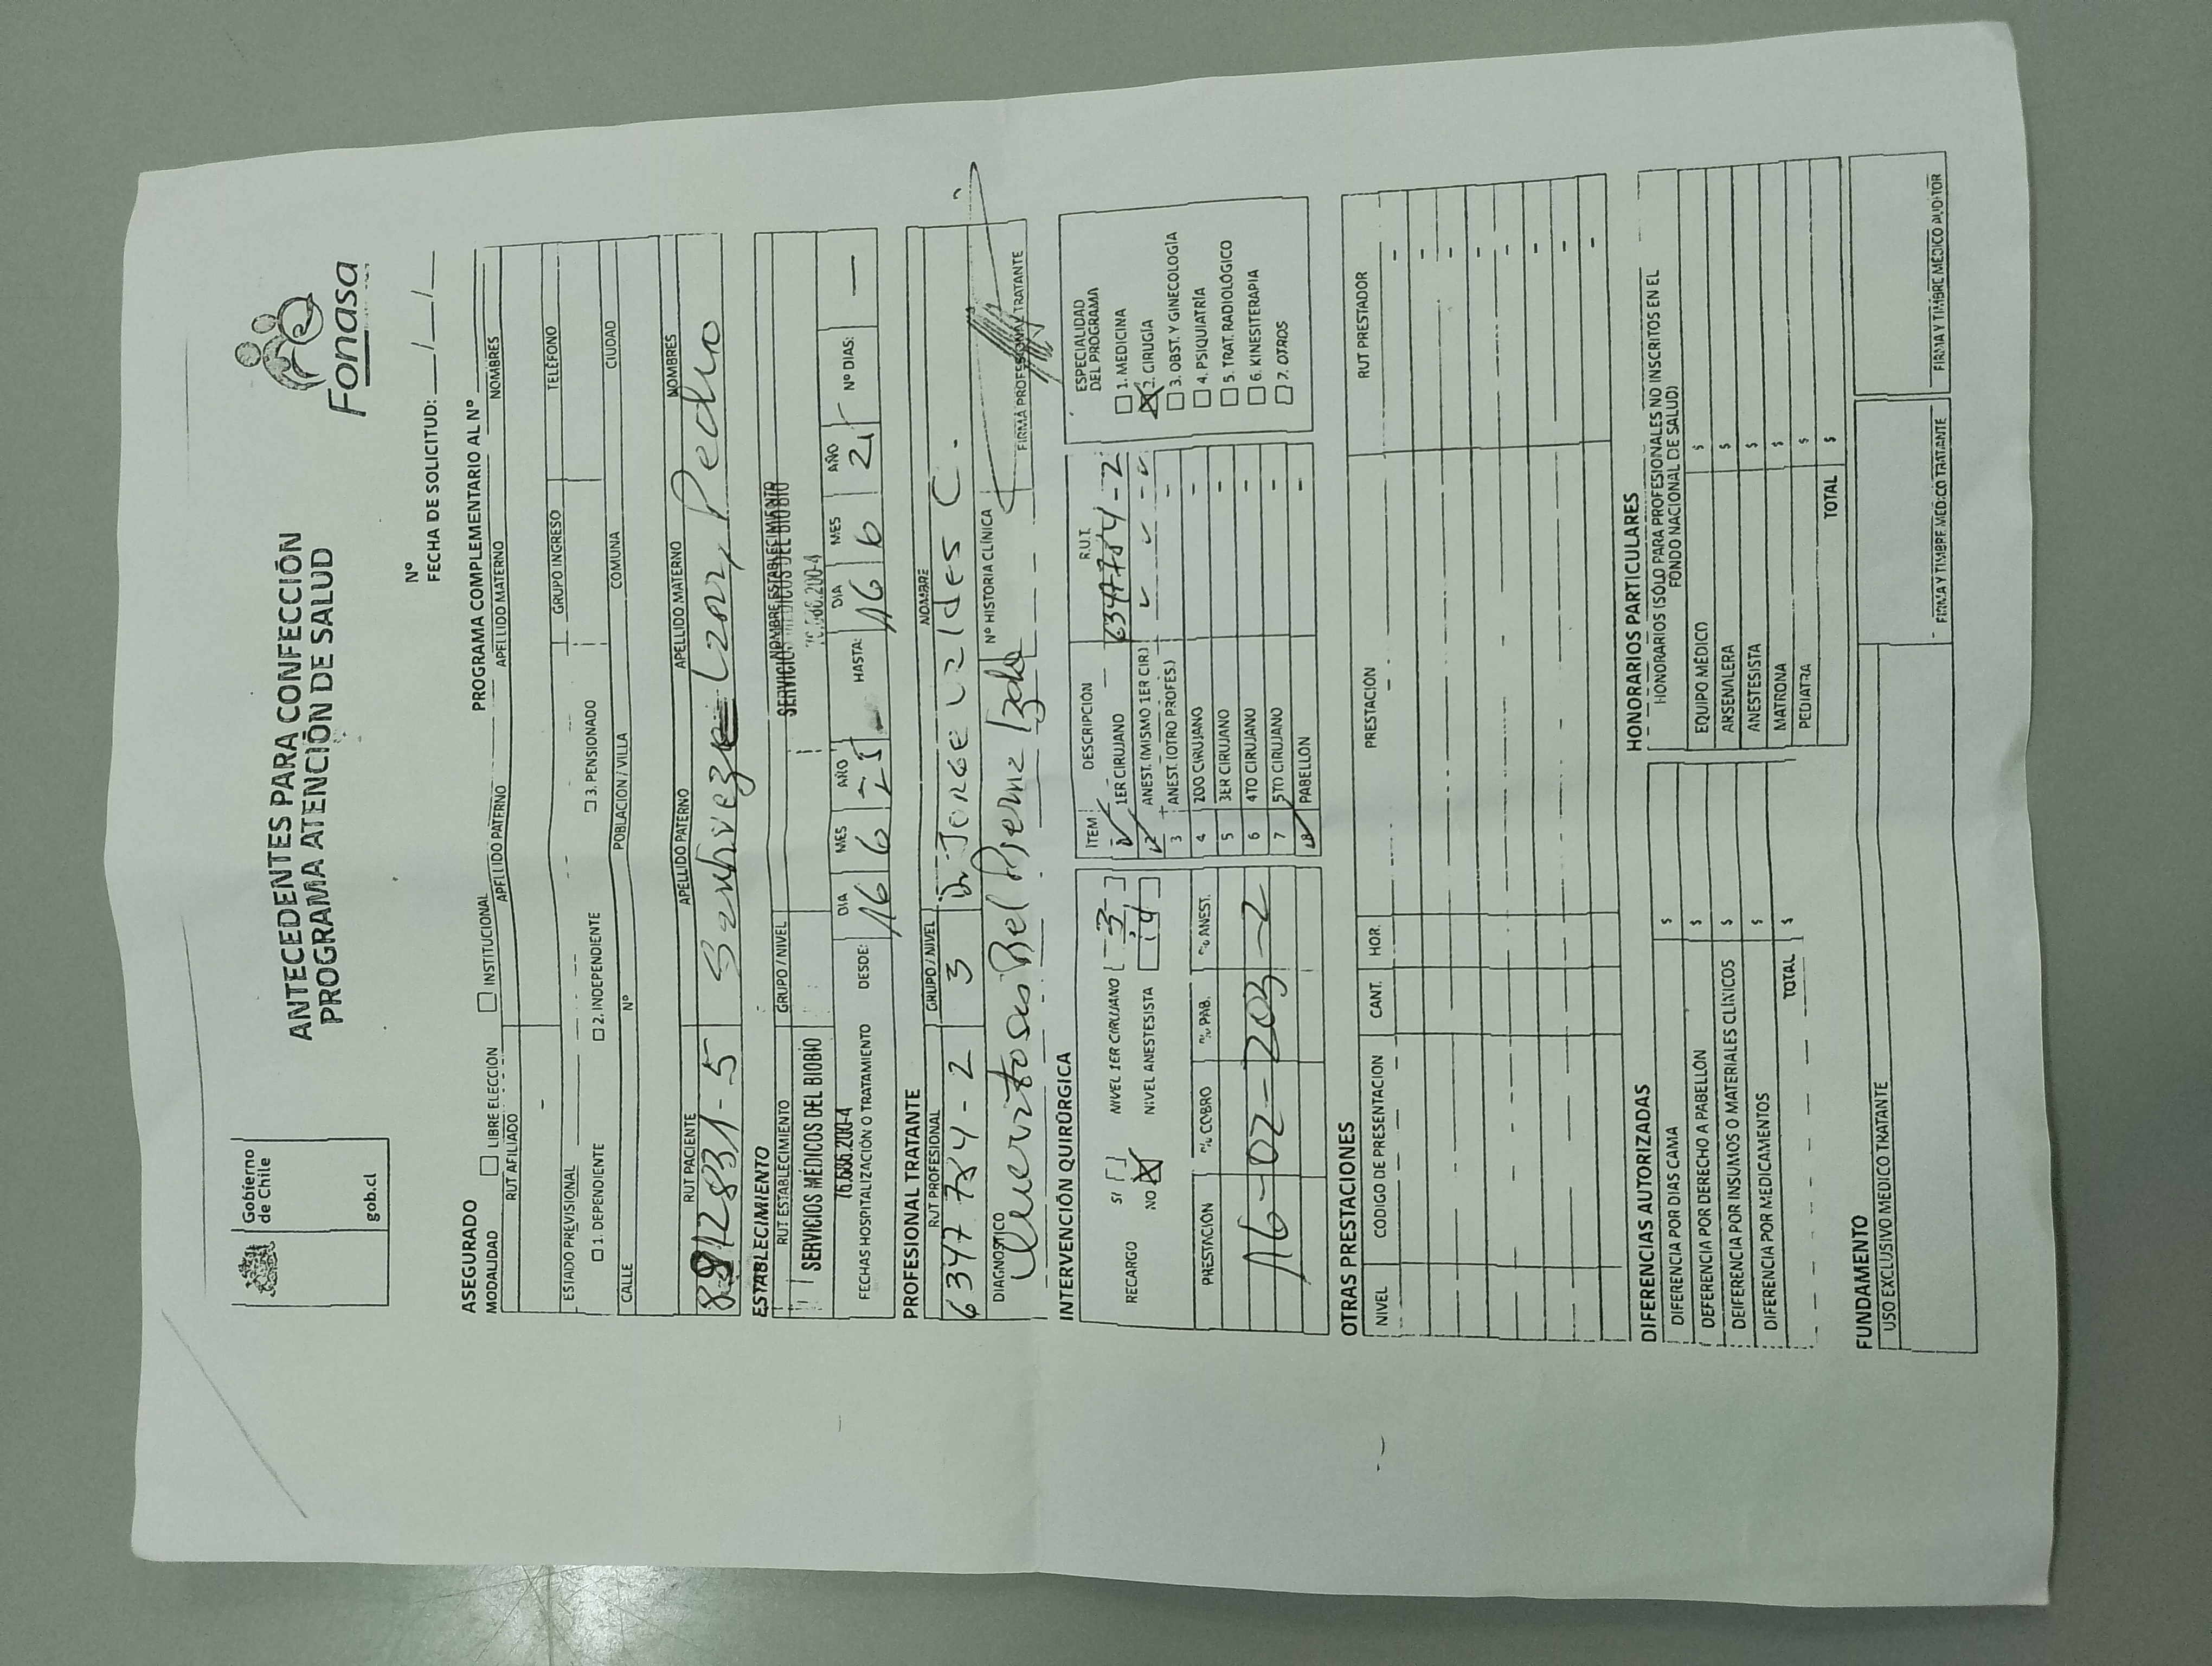 Gobierno
de Chile
gob.cl
ANTECEDENTES PARA CONFECCIÓN
PROGRAMA ATENCIÓN DE SALUD
Fonasa
Nº
FECHA DE SOLICITUD: __/__/__
ASEGURADO
MODALIDAD LIBRE ELECCIÓN INSTITUCIONAL PROGRAMA COMPLEMENTARIO AL Nº
RUT AFILIADO APELLIDO PATERNO APELLIDO MATERNO NOMBRES
-
ESTADO PREVISIONAL GRUPO INGRESO TELÉFONO
1. DEPENDIENTE 2. INDEPENDIENTE 3. PENSIONADO
CALLE Nº POBLACION / VILLA COMUNA CIUDAD
RUT PACIENTE APELLIDO PATERNO APELLIDO MATERNO NOMBRES
Pedro
ESTABLECIMIENTO
RUT ESTABLECIMIENTO GRUPO / NIVEL NOMBRE ESTABLECIMIENTO
SERVICIOS MÉDICOS DEL BIOBÍO SERVICIOS MÉDICOS DEL BIOBÍO
76.686.200-4 76.686.200-4
FECHAS HOSPITALIZACIÓN O TRATAMIENTO DESDE: DIA MES AÑO HASTA: DIA MES AÑO Nº DIAS:
16 6 16 6 —
PROFESIONAL TRATANTE
RUT PROFESIONAL GRUPO / NIVEL NOMBRE
6347784-2 3 Dr. Jorge Valdes C.
DIAGNOSTICO Nº HISTORIA CLÍNICA
FIRMA PROFESIONAL TRATANTE
INTERVENCIÓN QUIRÚRGICA
RECARGO SI NIVEL 1ER CIRUJANO 3
NO NIVEL ANESTESISTA
PRESTACIÓN % COBRO % PAB. % ANEST.
16-02-203-2
ITEM DESCRIPCIÓN R.U.T.
1 1ER CIRUJANO 6347784-2
2 ANEST. (MISMO 1ER CIR.)
3 ANEST. (OTRO PROFES.) -
4 2DO CIRUJANO -
5 3ER CIRUJANO -
6 4TO CIRUJANO -
7 5TO CIRUJANO -
8 PABELLON -
ESPECIALIDAD
DEL PROGRAMA
1. MEDICINA
2. CIRUGÍA
3. OBST. Y GINECOLOGÍA
4. PSIQUIATRÍA
5. TRAT. RADIOLOGICO
6. KINESITERAPIA
7. OTROS
OTRAS PRESTACIONES
NIVEL CODIGO DE PRESENTACION CANT. HOR. PRESTACION RUT PRESTADOR
-
-
-
-
-
-
-
-
DIFERENCIAS AUTORIZADAS
DIFERENCIA POR DIAS CAMA $
DEFERENCIA POR DERECHO A PABELLÓN $
DEIFERENCIA POR INSUMOS O MATERIALES CLÍNICOS $
DIFERENCIA POR MEDICAMENTOS $
TOTAL $
HONORARIOS PARTICULARES
HONORARIOS (SÓLO PARA PROFESIONALES NO INSCRITOS EN EL
FONDO NACIONAL DE SALUD)
EQUIPO MÉDICO $
ARSENALERA $
ANESTESISTA $
MATRONA $
PEDIATRA $
TOTAL $
FUNDAMENTO
USO EXCLUSIVO MEDICO TRATANTE
FIRMA Y TIMBRE MEDICO TRATANTE
FIRMA Y TIMBRE MÉDICO AUDITOR